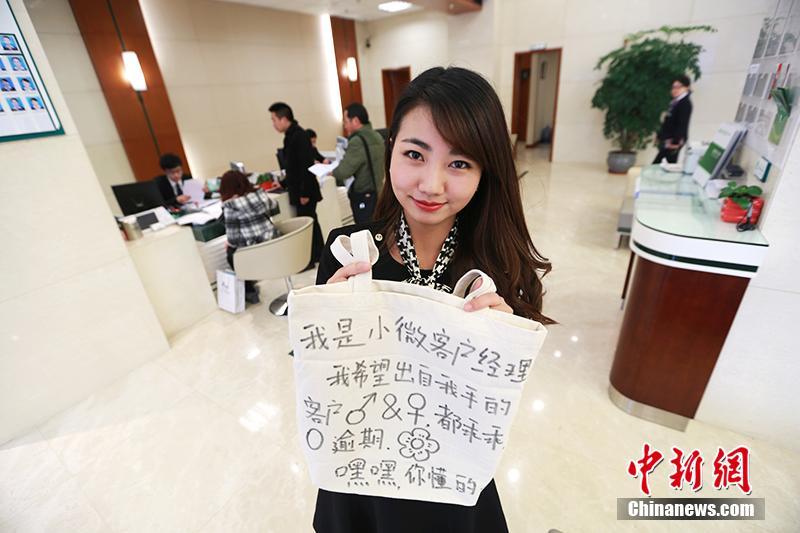 我是小微客户经理
我希望出自我手的
客户♂&♀.都乖乖
0逾期.
嘿嘿,你懂的
中新网
Chinanews.com